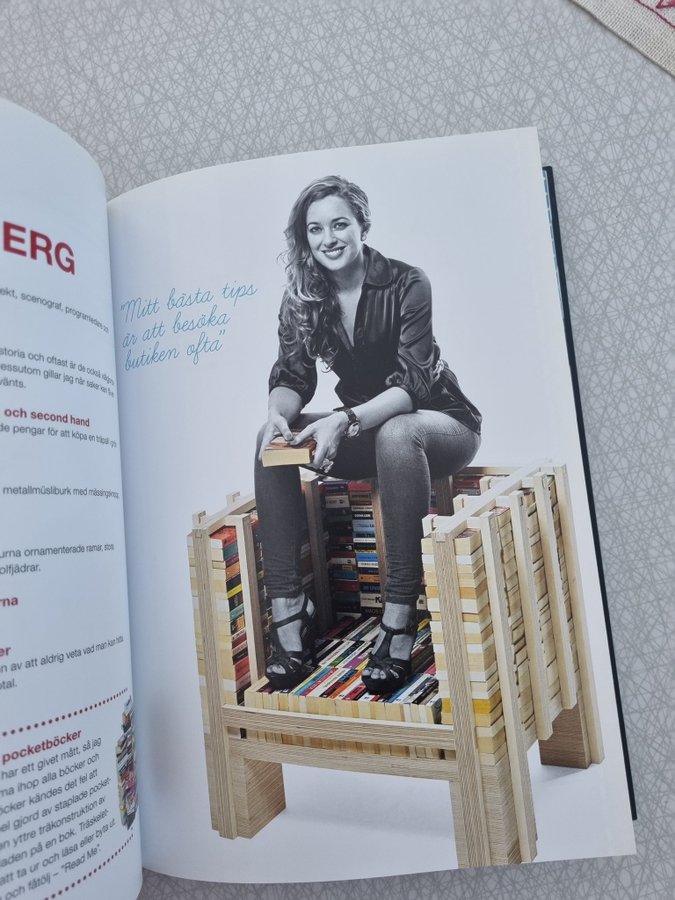 ERG
ekt, scenograf, programledare och
storia och oftast är de också
essutom gillar jag när saker kan
vänts.
och second hand
de pengar för att köpa en
metallmüsliburk med mässingsknopp,
urna ornamenterade ramar, stora
olfjädrar.
rna
er
en av att aldrig veta vad man kan hitta
otal.
pocketböcker
har ett givet mått, så jag
ma ihop alla böcker och
öcker kändes det fel att
el gjord av staplade pocket-
en yttre träkonstruktion av
laden på en bok. Träskelet-
att ta ur och läsa eller byta ut.
och fåtölj – "Read Me".
"Mitt bästa tips
är att besöka
butiken ofta"